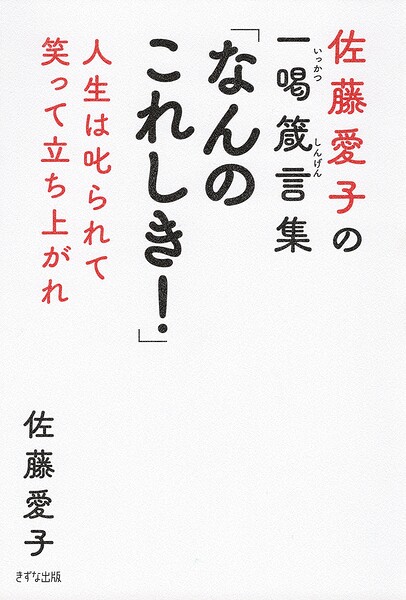 佐藤愛子の
一喝箴言集
いっかつ
しんげん
「なんの
これしき！」
人生は叱られて
笑って立ち上がれ
佐藤愛子
きずな出版